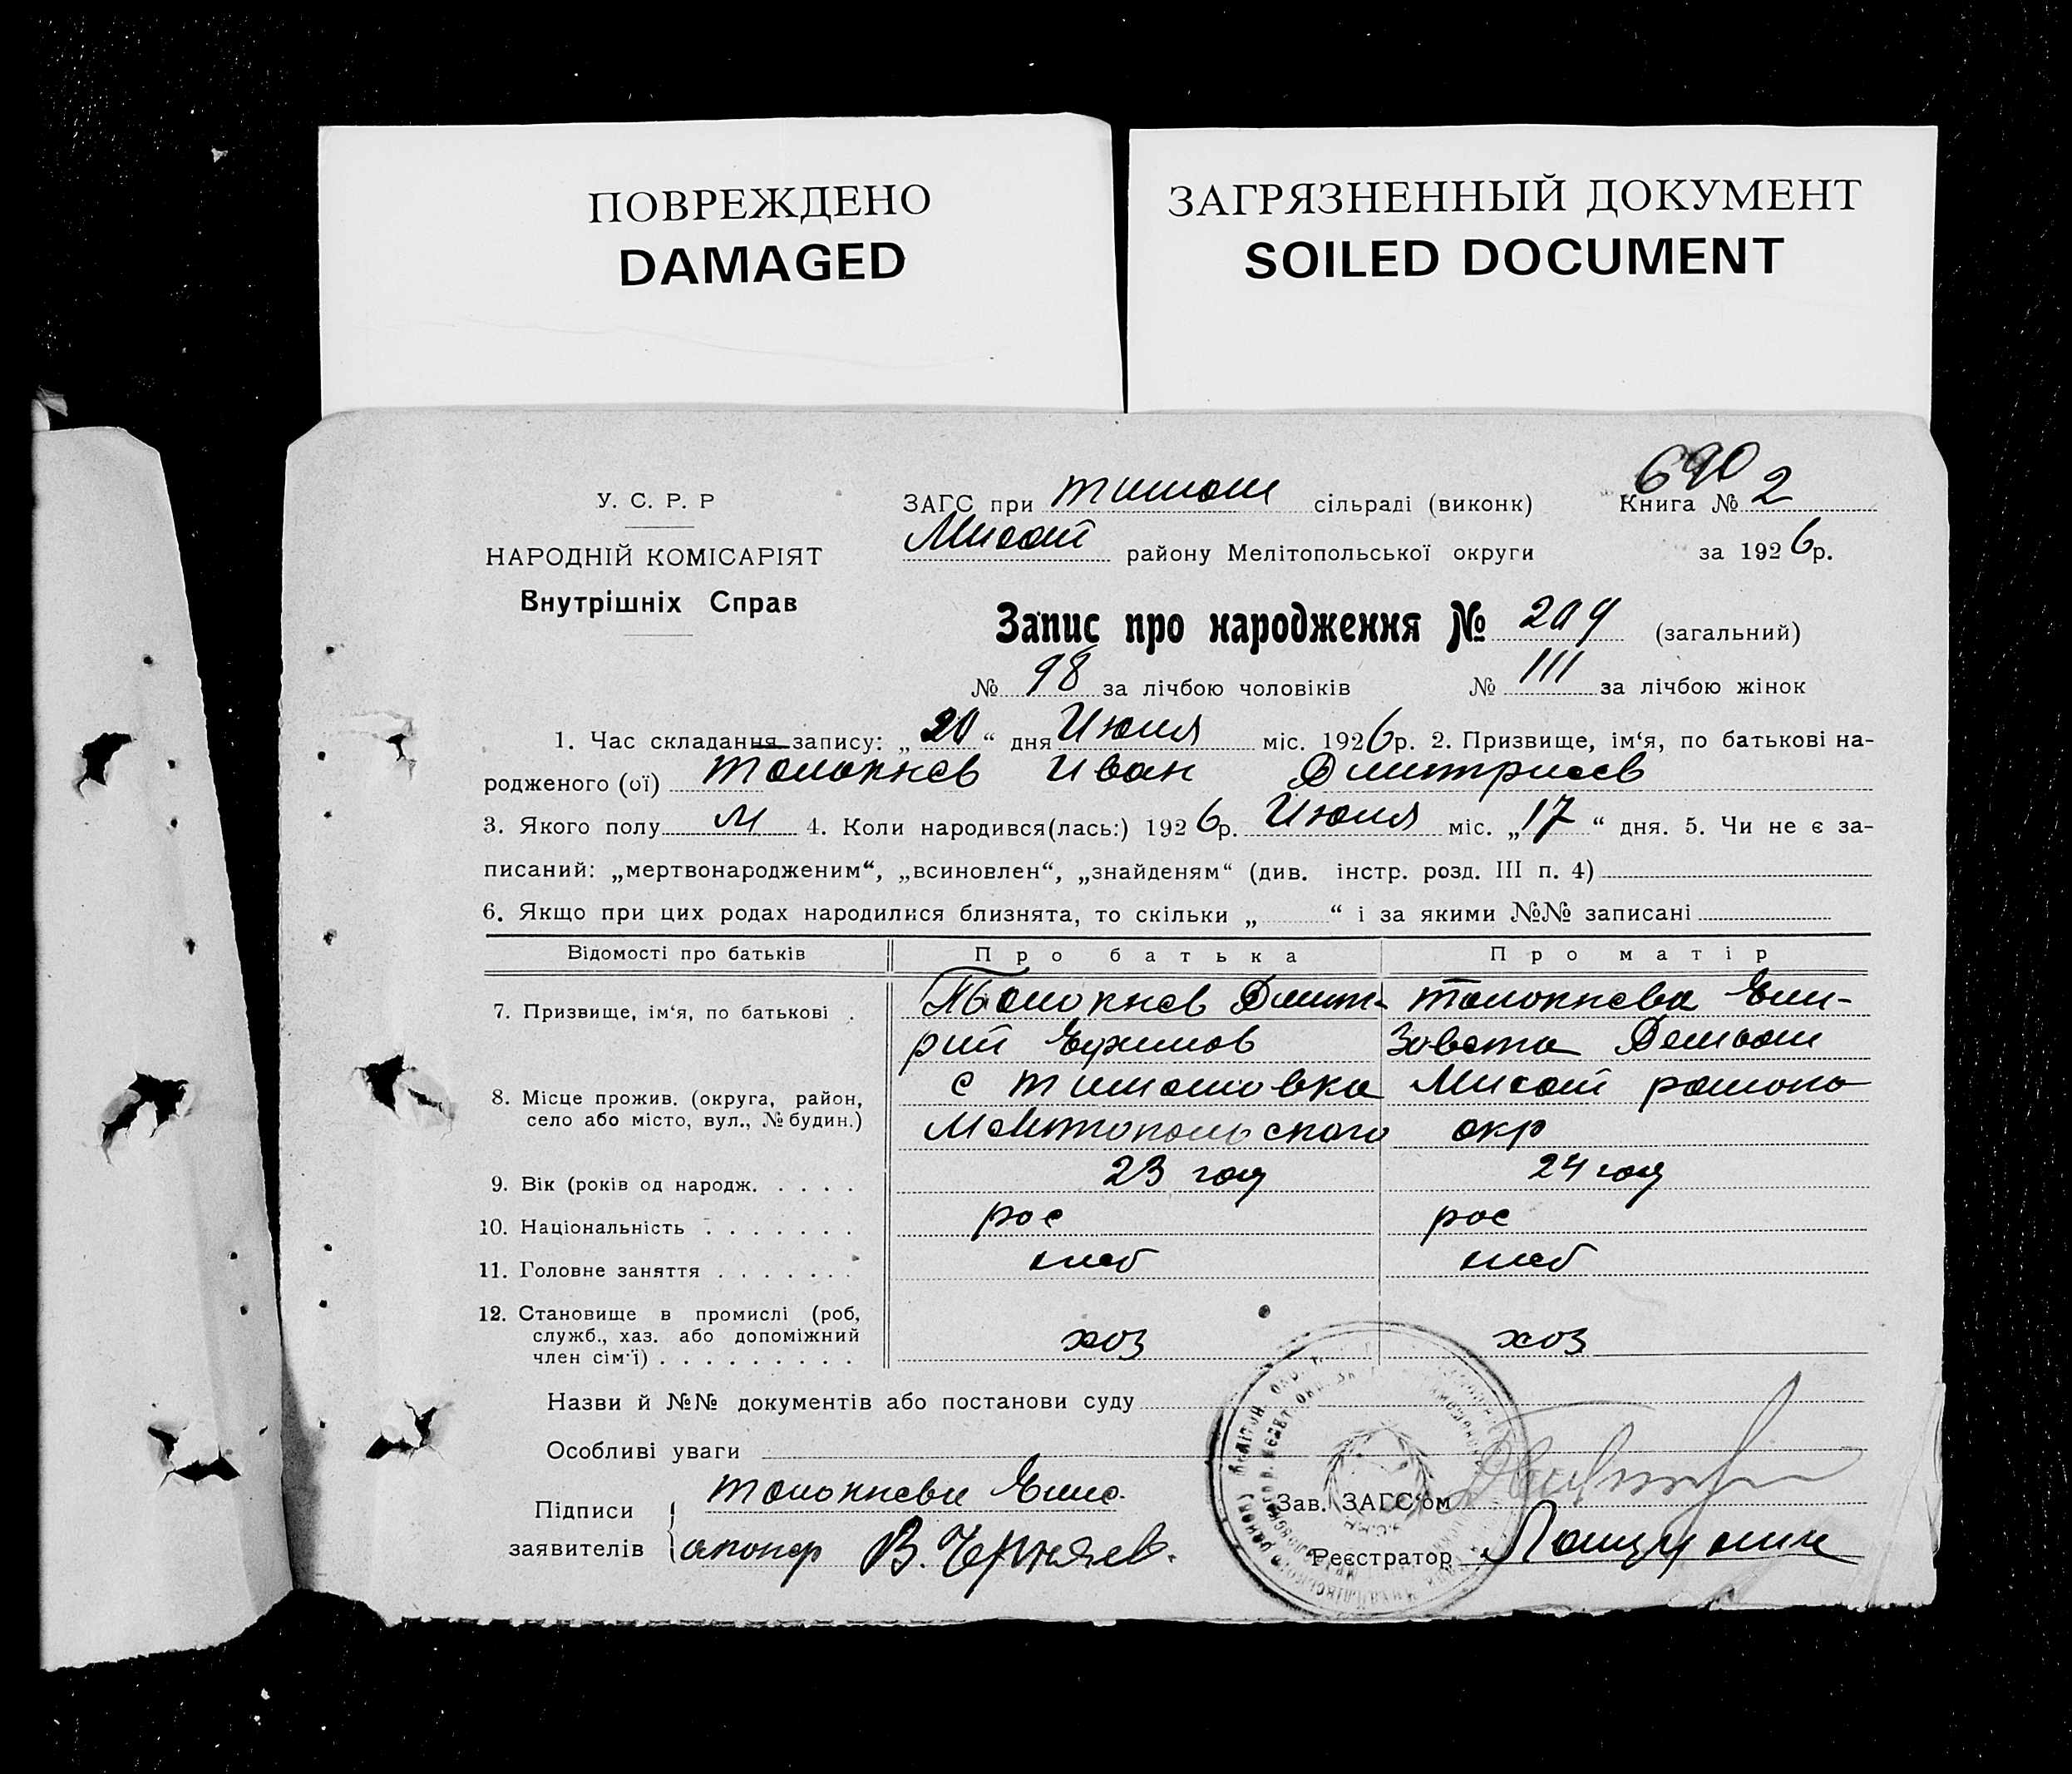 ПОВРЕЖДЕНО
DAMAGED
ЗАГРЯЗНЕННЫЙ ДОКУМЕНТ
SOILED DOCUMENT
690
У. С. Р. Р
НАРОДНІЙ КОМІСАРІЯТ
Внутрішніх Справ
ЗАГС при Тимош сільраді (виконк) Книга № 2
Михай району Мелітопольської округи за 1926р.
Запис про народження № 209 (загальний)
№ 98 за лічбою чоловіків № 111 за лічбою жінок
1. Час складання запису: „20“ дня Июля міс. 1926р. 2. Призвище, ім‘я, по батькові на-
родженого (ої) Толокнев Иван Дмитриев
3. Якого полу М 4. Коли народився(лась:) 1926р. Июля міс. „17“ дня. 5. Чи не є за-
писаний: „мертвонародженим“, „всиновлен“, „знайденям“ (див. інстр. розд. III п. 4)
6. Якщо при цих родах народилися близнята, то скільки „ “ і за якими №№ записані
Відомості про батьків Про батька Про матір
7. Призвище, ім‘я, по батькові . Толокнев Дмит- Толокнева Ели-
рий Ефимов Завета
8. Місце прожив. (округа, район, с Тимошовка Михай района
село або місто, вул., № будин.) Мелитопольского окр
9. Вік (років од народж. . . . . 23 год 24 год
10. Національність . . . . . . . рос рос
11. Головне заняття . . . . . . . хлеб хлеб
12. Становище в промислі (роб,
служб., хаз. або допоміжний
член сім‘ї) . . . . . . . . . хоз хоз
Назви й №№ документів або постанови суду
Особливі уваги
Підписи Толокневи
заявителів В. Черняев.
Зав. ЗАГС‘ом
Реєстратор